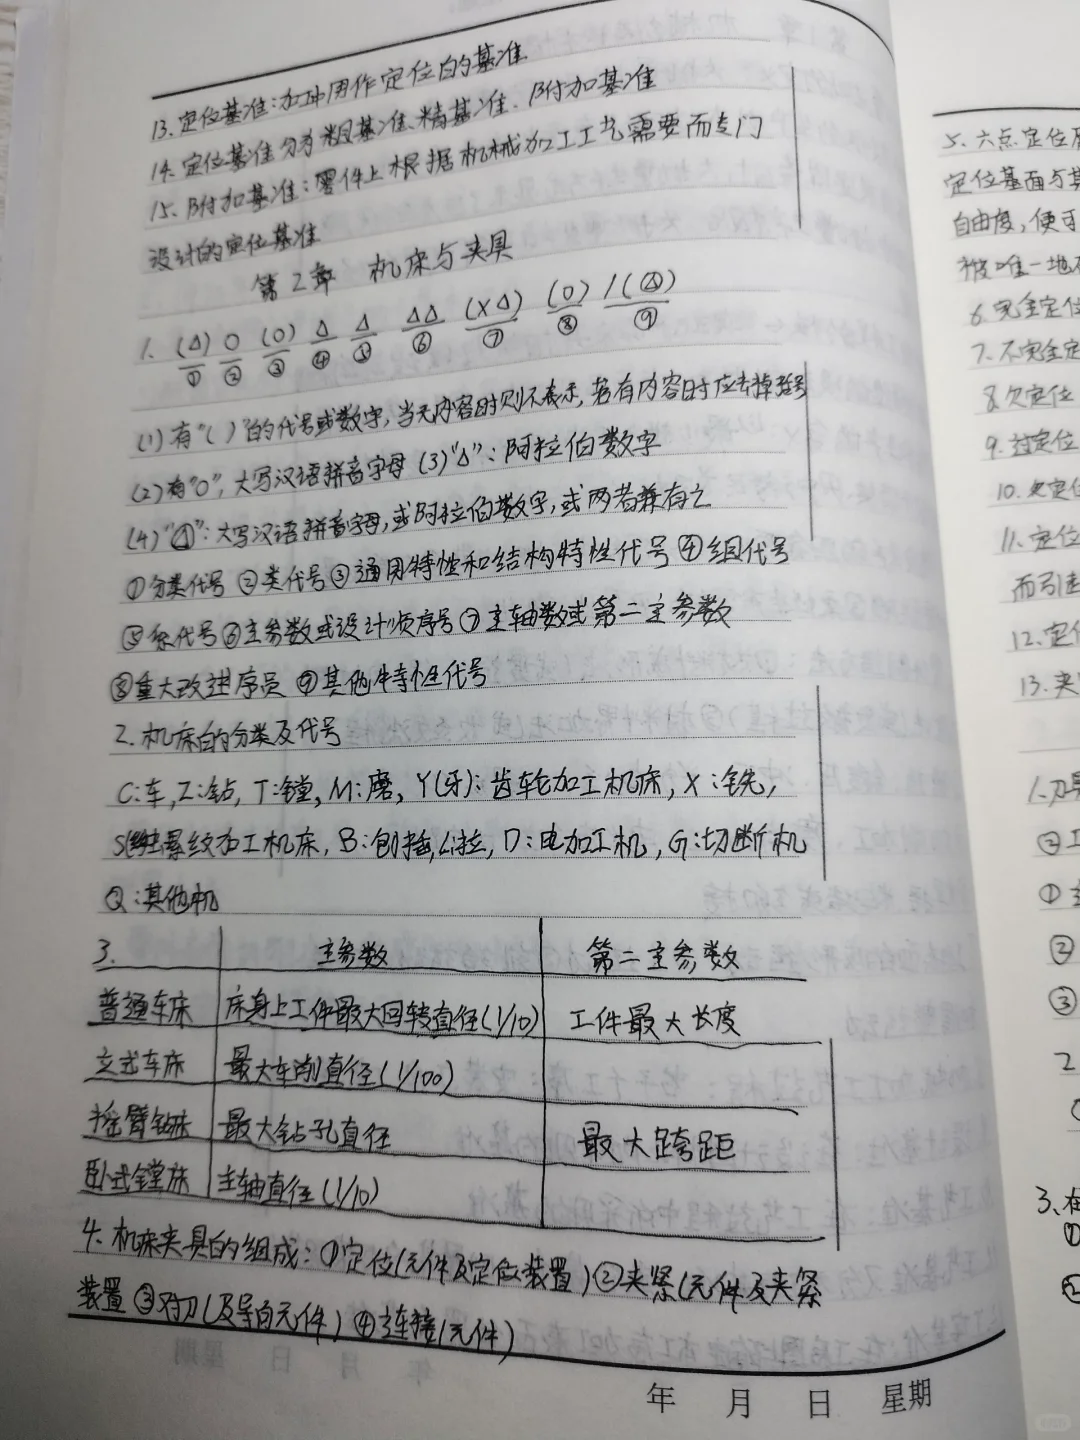 13. 定位基准:加工中用作定位的基准
14. 定位基准分为粗基准、精基准、附加基准
15. 附加基准:零件上根据机械加工工艺需要而专门
设计的定位基准
第2章 机床与夹具
1. (Δ) O (O) Δ Δ ΔΔ (XΔ) (O) /(Ⓐ)
① ② ③ ④ ⑤ ⑥ ⑦ ⑧ ⑨
(1)有"( )"的代号或数字,当无内容时则不表示,若有内容时应去掉括号
(2)有"O",大写汉语拼音字母 (3)"Δ":阿拉伯数字
(4)"Ⓐ":大写汉语拼音字母,或阿拉伯数字,或两者兼有之
①分类代号 ②类代号 ③通用特性和结构特性代号 ④组代号
⑤系代号 ⑥主参数或设计顺序号 ⑦主轴数或第二主参数
⑧重大改进序员 ⑨其他特性代号
2. 机床的分类及代号
C:车, Z:钻, T:镗, M:磨, Y(牙):齿轮加工机床, X:铣,
S:螺纹加工机床, B:刨插, L:拉, D:电加工机, G:切断机
Q:其他机
3. 主参数 第二主参数
普通车床 床身上工件最大回转直径(1/10) 工件最大长度
立式车床 最大车削直径(1/100)
摇臂钻床 最大钻孔直径 最大跨距
卧式镗床 主轴直径(1/10)
4. 机床夹具的组成:①定位(元件及定位装置)②夹紧(元件及夹紧
装置 ③对刀(及导向元件) ④连接(元件)
年 月 日 星期
5. 六点定位
定位基面与其
自由度,便可
被唯一地
6. 完全定位
7. 不完全定
8. 欠定位
9. 过定位
10. 欠定位
11. 定位
而引起
12. 定位
13. 夹
1. 刀具
② 工
①
②
③
2
3. 在
①
②